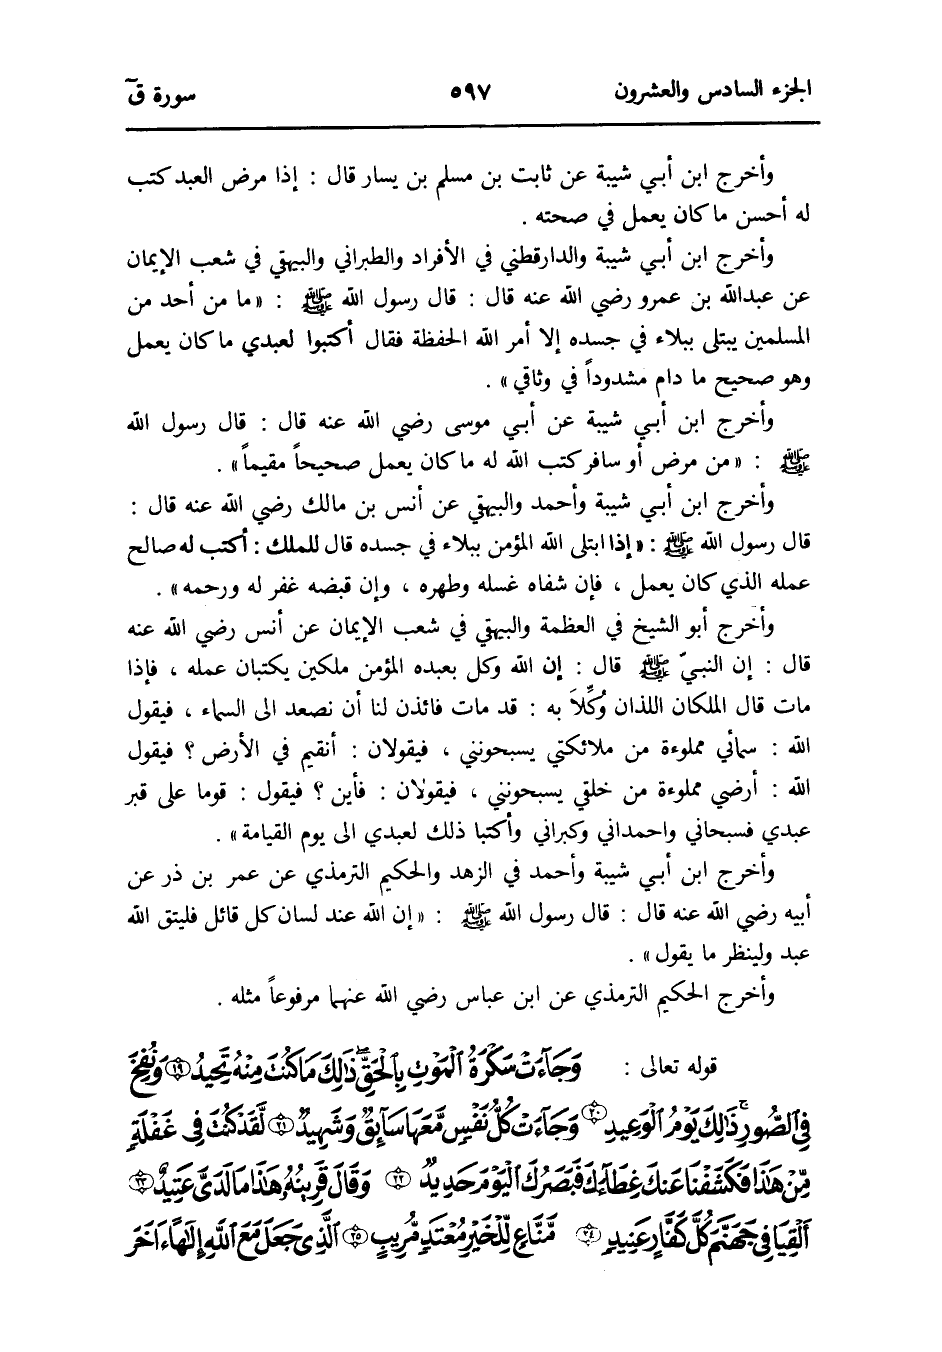 الجزء السادس والعشرون ٥٩٧ سورة قٓ
وأخرج ابن أبي شيبة عن ثابت بن مسلم بن يسار قال : إذا مرض العبد كتب
له أحسن ما كان يعمل في صحته .
وأخرج ابن أبي شيبة والدارقطني في الأفراد والطبراني والبيهقي في شعب الإيمان
عن عبدالله بن عمرو رضي الله عنه قال : قال رسول الله ﷺ : «ما من أحد من
المسلمين يبتلى ببلاء في جسده إلا أمر الله الحفظة فقال أكتبوا لعبدي ما كان يعمل
وهو صحيح ما دام مشدوداً في وثاقي» .
وأخرج ابن أبي شيبة عن أبي موسى رضي الله عنه قال : قال رسول الله
ﷺ : «من مرض أو سافر كتب الله له ما كان يعمل صحيحاً مقيماً» .
وأخرج ابن أبي شيبة وأحمد والبيهقي عن أنس بن مالك رضي الله عنه قال :
قال رسول الله ﷺ : «إذا ابتلى الله المؤمن ببلاء في جسده قال للملك : أكتب له صالح
عمله الذي كان يعمل ، فإن شفاه غسله وطهره ، وإن قبضه غفر له ورحمه» .
وأخرج أبو الشيخ في العظمة والبيهقي في شعب الإيمان عن أنس رضي الله عنه
قال : إن النبيّ ﷺ قال : إن الله وكل بعبده المؤمن ملكين يكتبان عمله ، فإذا
مات قال الملكان اللذان وُكِّلاَ به : قد مات فائذن لنا أن نصعد الى السماء ، فيقول
الله : سمائي مملوءة من ملائكتي يسبحونني ، فيقولان : أنقيم في الأرض ؟ فيقول
الله : أرضي مملوءة من خلقي يسبحونني ، فيقولان : فأين ؟ فيقول : قوما على قبر
عبدي فسبحاني واحمداني وكبراني وأكتبا ذلك لعبدي الى يوم القيامة» .
وأخرج ابن أبي شيبة وأحمد في الزهد والحكيم الترمذي عن عمر بن ذر عن
أبيه رضي الله عنه قال : قال رسول الله ﷺ : «إن الله عند لسان كل قائل فليتق الله
عبد ولينظر ما يقول» .
وأخرج الحكيم الترمذي عن ابن عباس رضي الله عنهما مرفوعاً مثله .
قوله تعالى : وَجَآءَتْ سَكْرَةُ الْمَوْتِ بِالْحَقِّ ۖ ذَٰلِكَ مَا كُنتَ مِنْهُ تَحِيدُ ﴿١٩﴾ وَنُفِخَ
فِي الصُّورِ ۚ ذَٰلِكَ يَوْمُ الْوَعِيدِ ﴿٢٠﴾ وَجَآءَتْ كُلُّ نَفْسٍ مَّعَهَا سَآئِقٌ وَشَهِيدٌ ﴿٢١﴾ لَّقَدْ كُنتَ فِي غَفْلَةٍ
مِّنْ هَٰذَا فَكَشَفْنَا عَنكَ غِطَآءَكَ فَبَصَرُكَ الْيَوْمَ حَدِيدٌ ﴿٢٢﴾ وَقَالَ قَرِينُهُ هَٰذَا مَا لَدَيَّ عَتِيدٌ ﴿٢٣﴾
أَلْقِيَا فِي جَهَنَّمَ كُلَّ كَفَّارٍ عَنِيدٍ ﴿٢٤﴾ مَّنَّاعٍ لِّلْخَيْرِ مُعْتَدٍ مُّرِيبٍ ﴿٢٥﴾ الَّذِي جَعَلَ مَعَ اللَّهِ إِلَٰهًا ءَاخَرَ